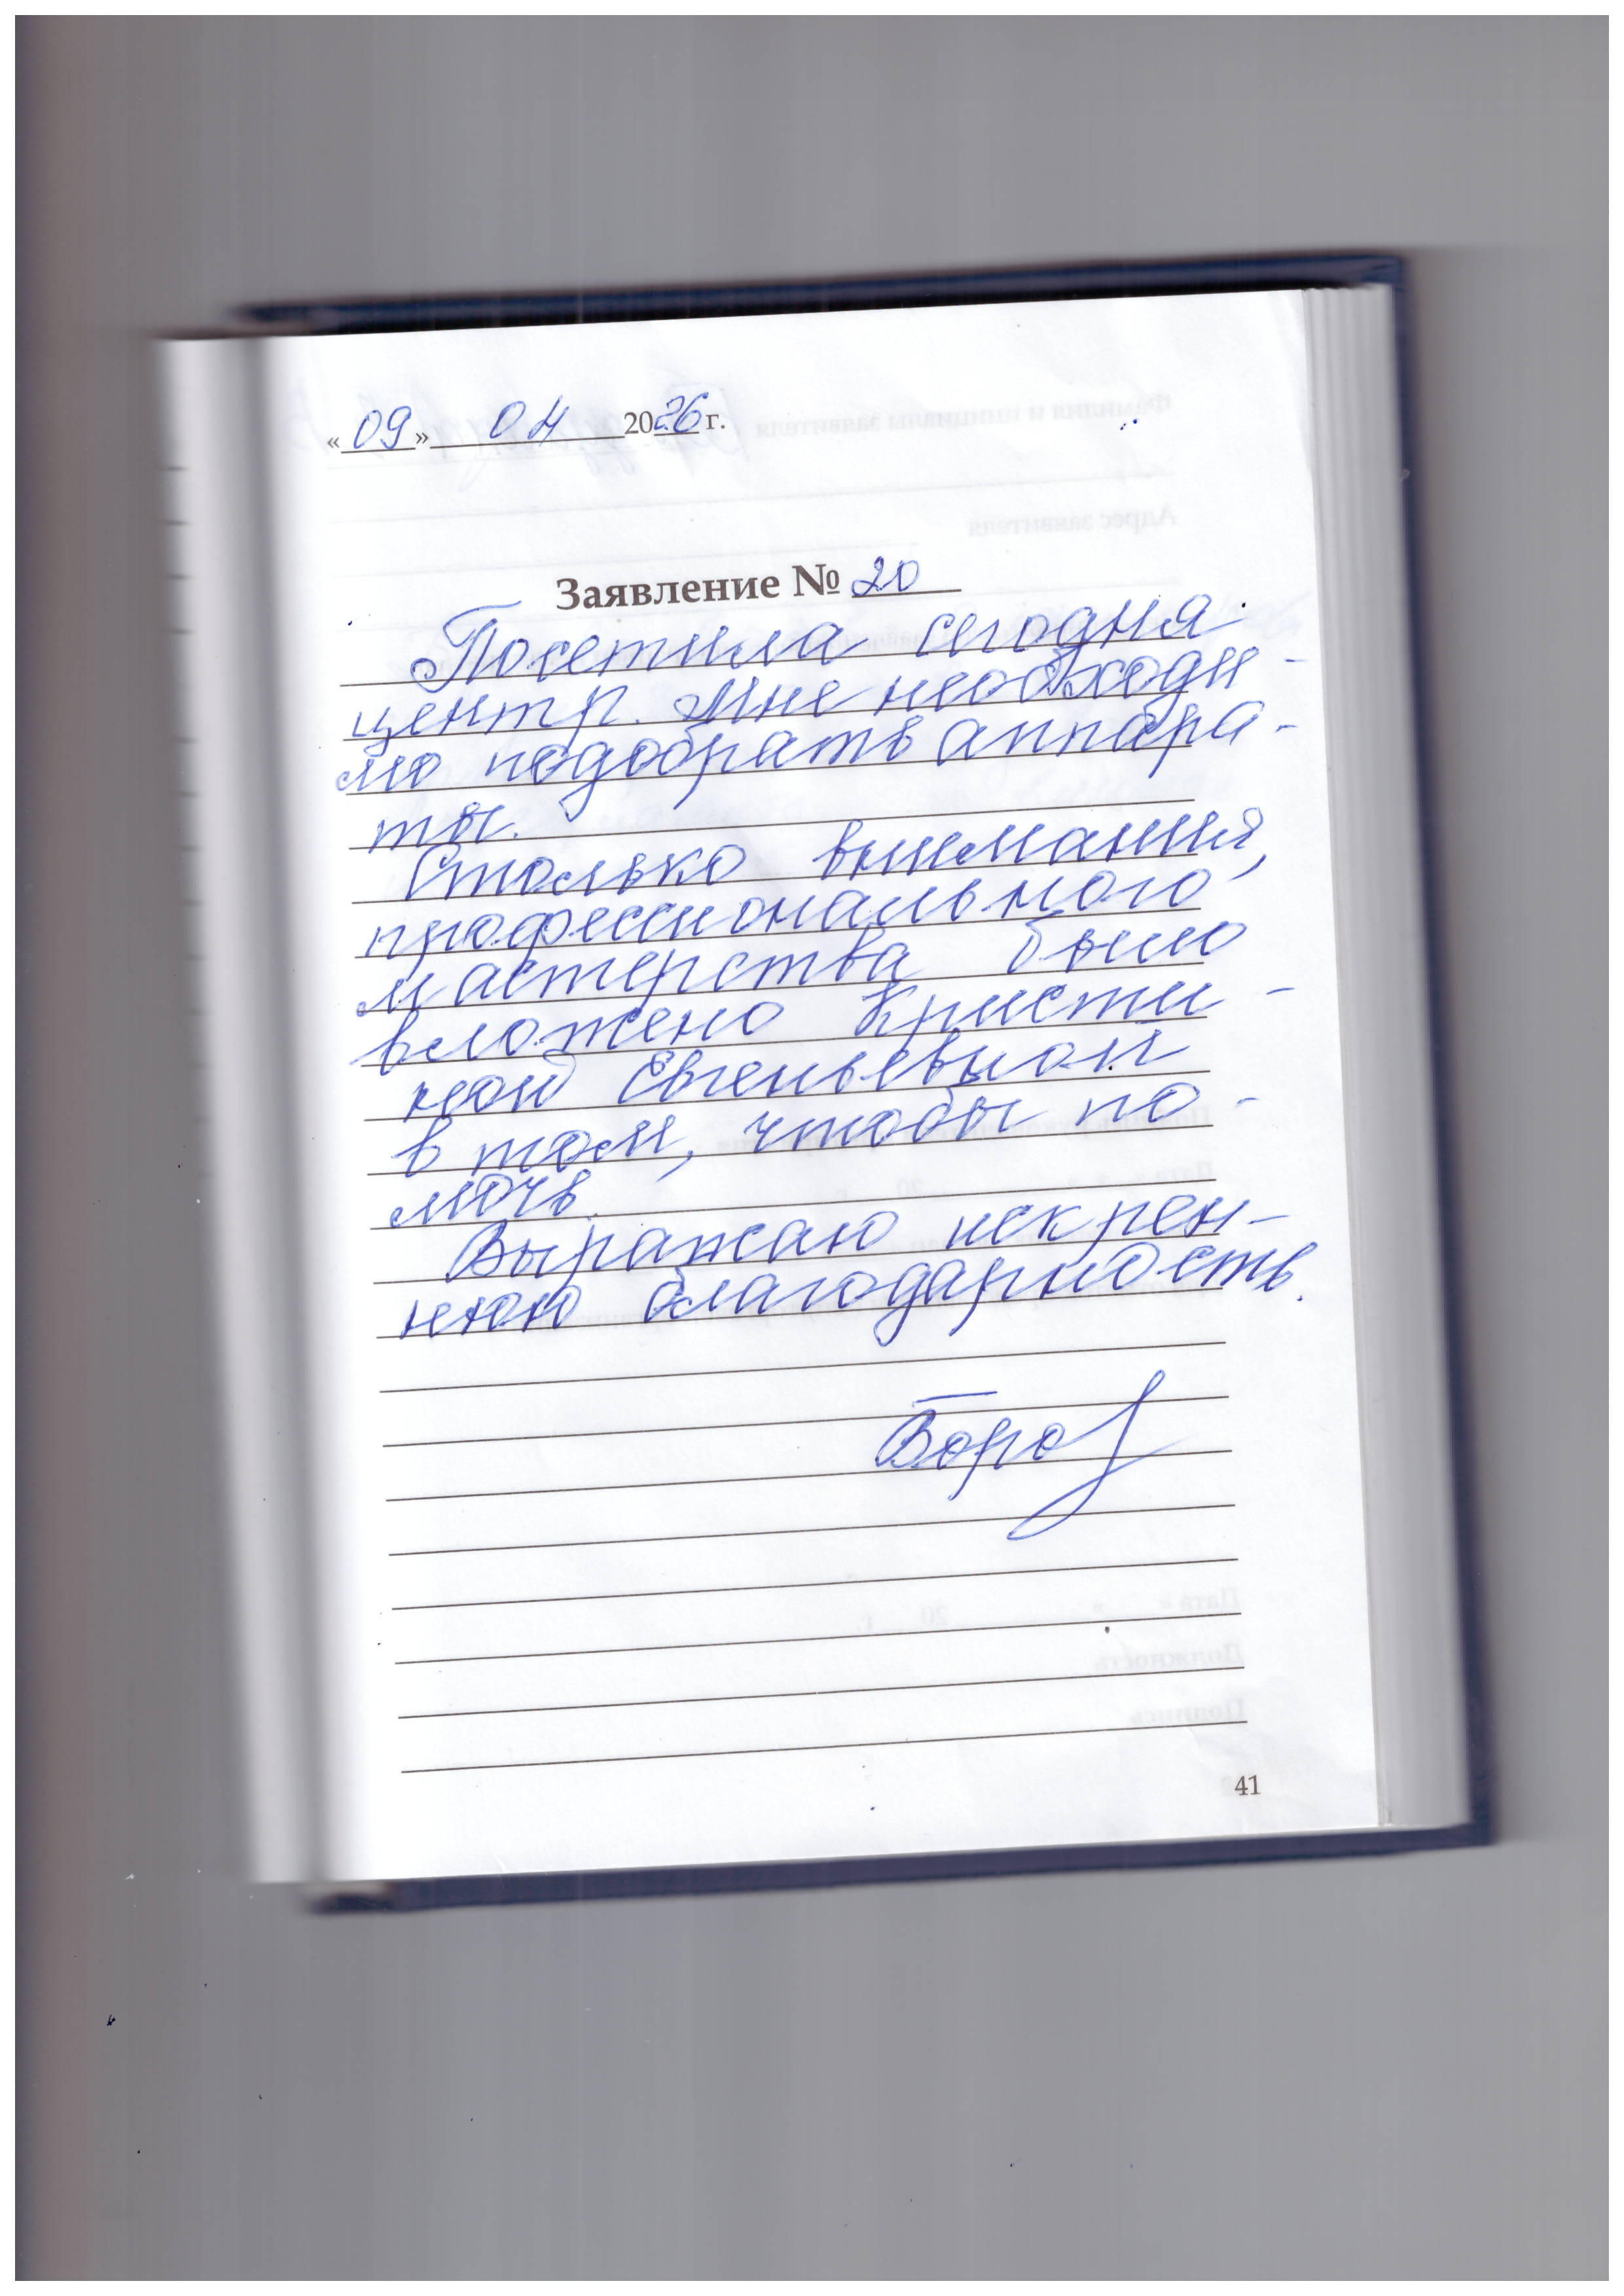 «09» 04 2026 г.
Заявление № 20
Посетила сегодня
центр. Мне необходи-
мо подобрать аппара-
ты.
Столько внимания,
профессионального
мастерства было
вложено Кристи-
ной Евгеньевной
в том, чтобы по-
мочь.
Выражаю искрен-
нюю благодарность.
41